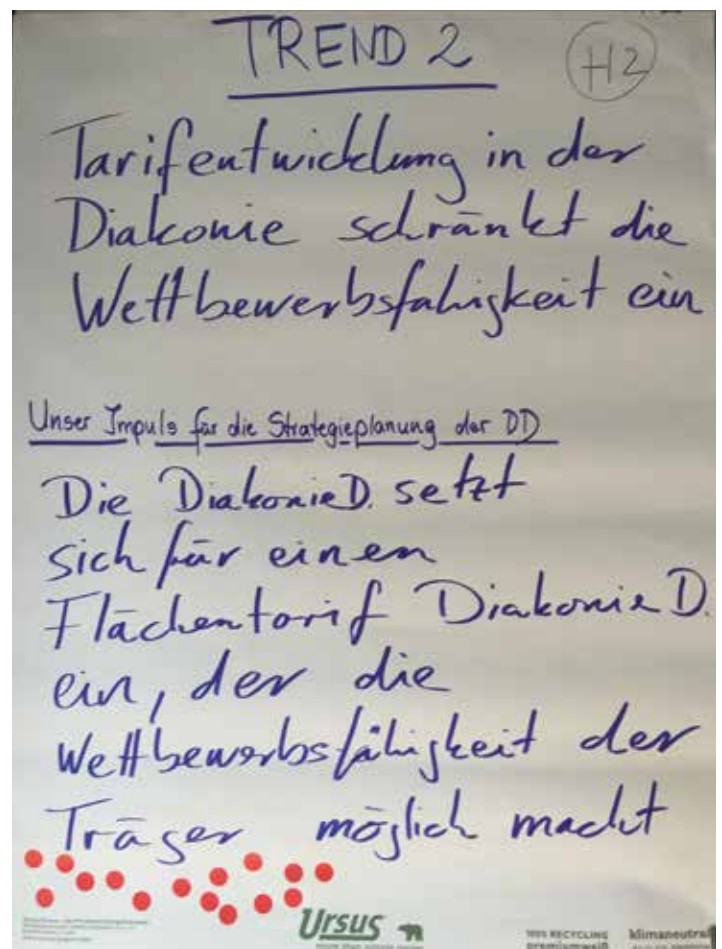 TREND 2
H2
Tarifentwicklung in der
Diakonie schränkt die
Wettbewerbsfähigkeit ein
Unser Impuls für die Strategieplanung der DD
Die Diakonie D. setzt
sich für einen
Flächentarif Diakonie D.
ein, der die
Wettbewerbsfähigkeit der
Träger möglich macht
Ursus
100% RECYCLING
premiumweiß
klimaneutral